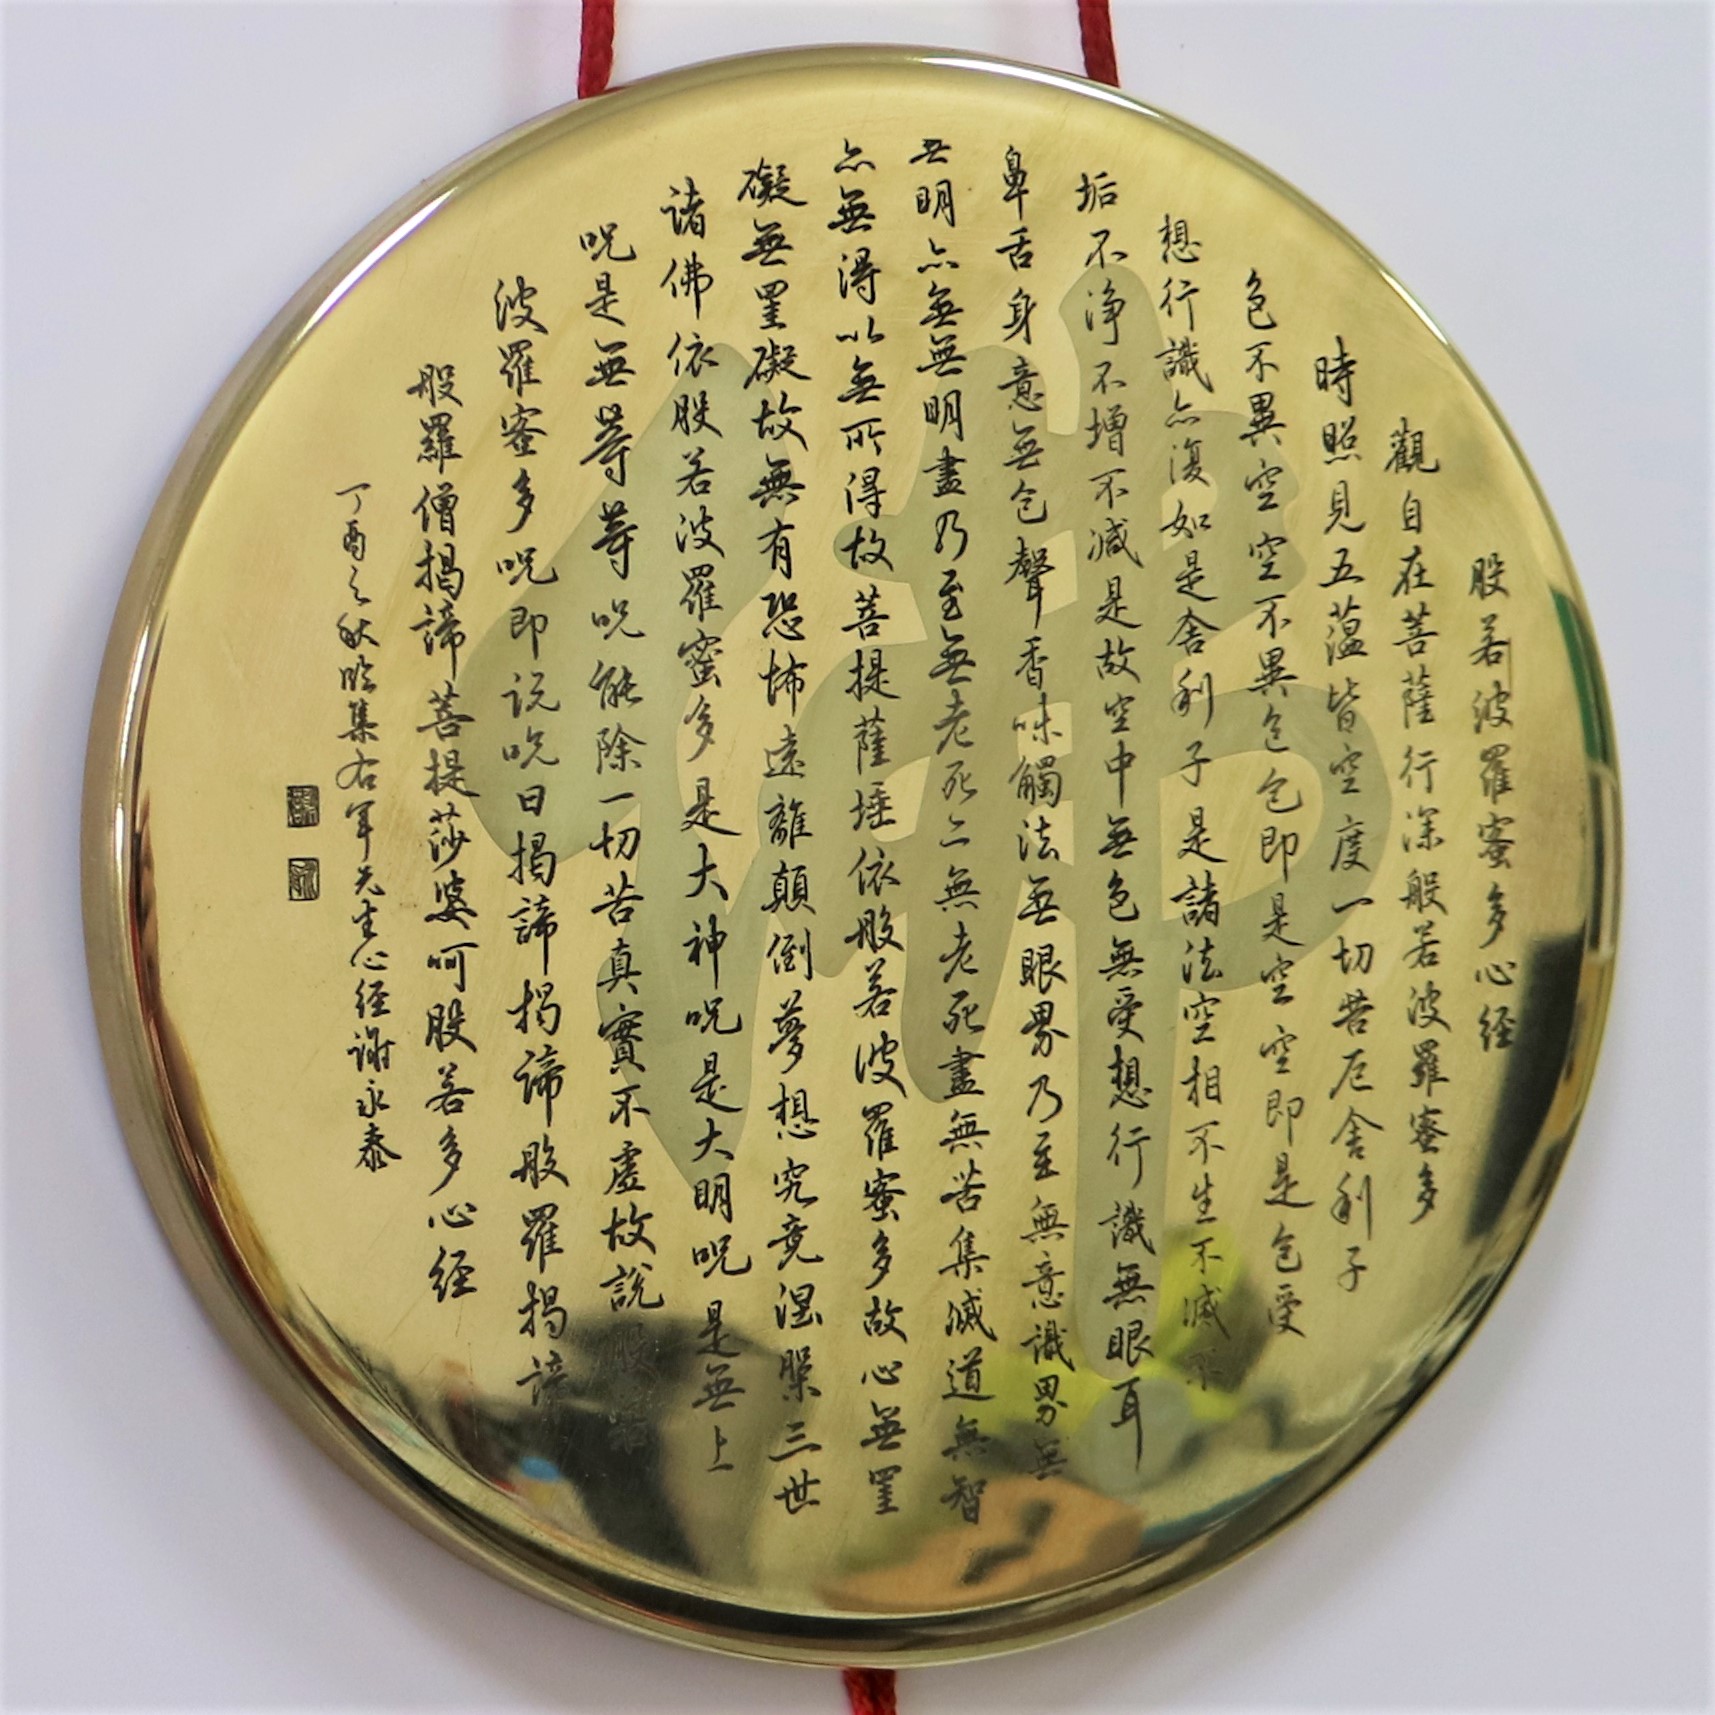 般若波羅蜜多心经
觀自在菩薩行深般若波羅蜜多
時照見五蕴皆空度一切苦厄舍利子
色不異空空不異色色即是空空即是色受
想行識亦復如是舍利子是諸法空相不生不滅不
垢不淨不增不減是故空中無色無受想行識無眼耳
鼻舌身意無色聲香味觸法無眼界乃至無意識界無
無明亦無無明盡乃至無老死亦無老死盡無苦集滅道無智
亦無得以無所得故菩提薩埵依般若波羅蜜多故心無罣
礙無罣礙故無有恐怖遠離顛倒夢想究竟涅槃三世
諸佛依般若波羅蜜多是大神呪是大明呪是無上
呪是無等等呪能除一切苦真實不虛故說般若
波羅蜜多呪即説呪曰揭諦揭諦般羅揭諦
般羅僧揭諦菩提莎婆呵般若多心経
丁酉之秋臨集右军先生心経谢永泰
佛